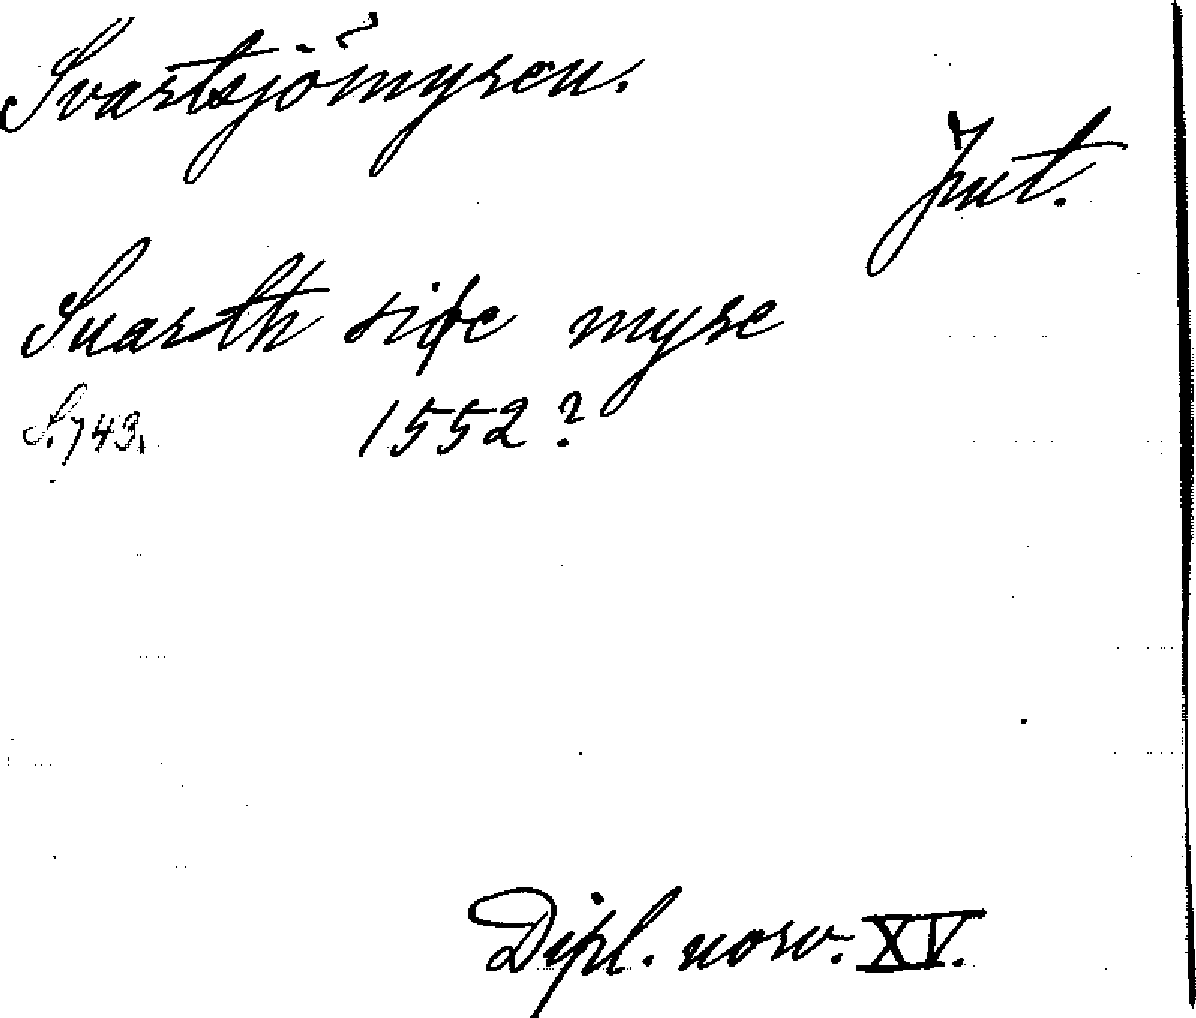 Svartsjömyren. ?
Jmt.
Suarth siøe myre
S. 743. 1552?
Dipl. norv. XV.